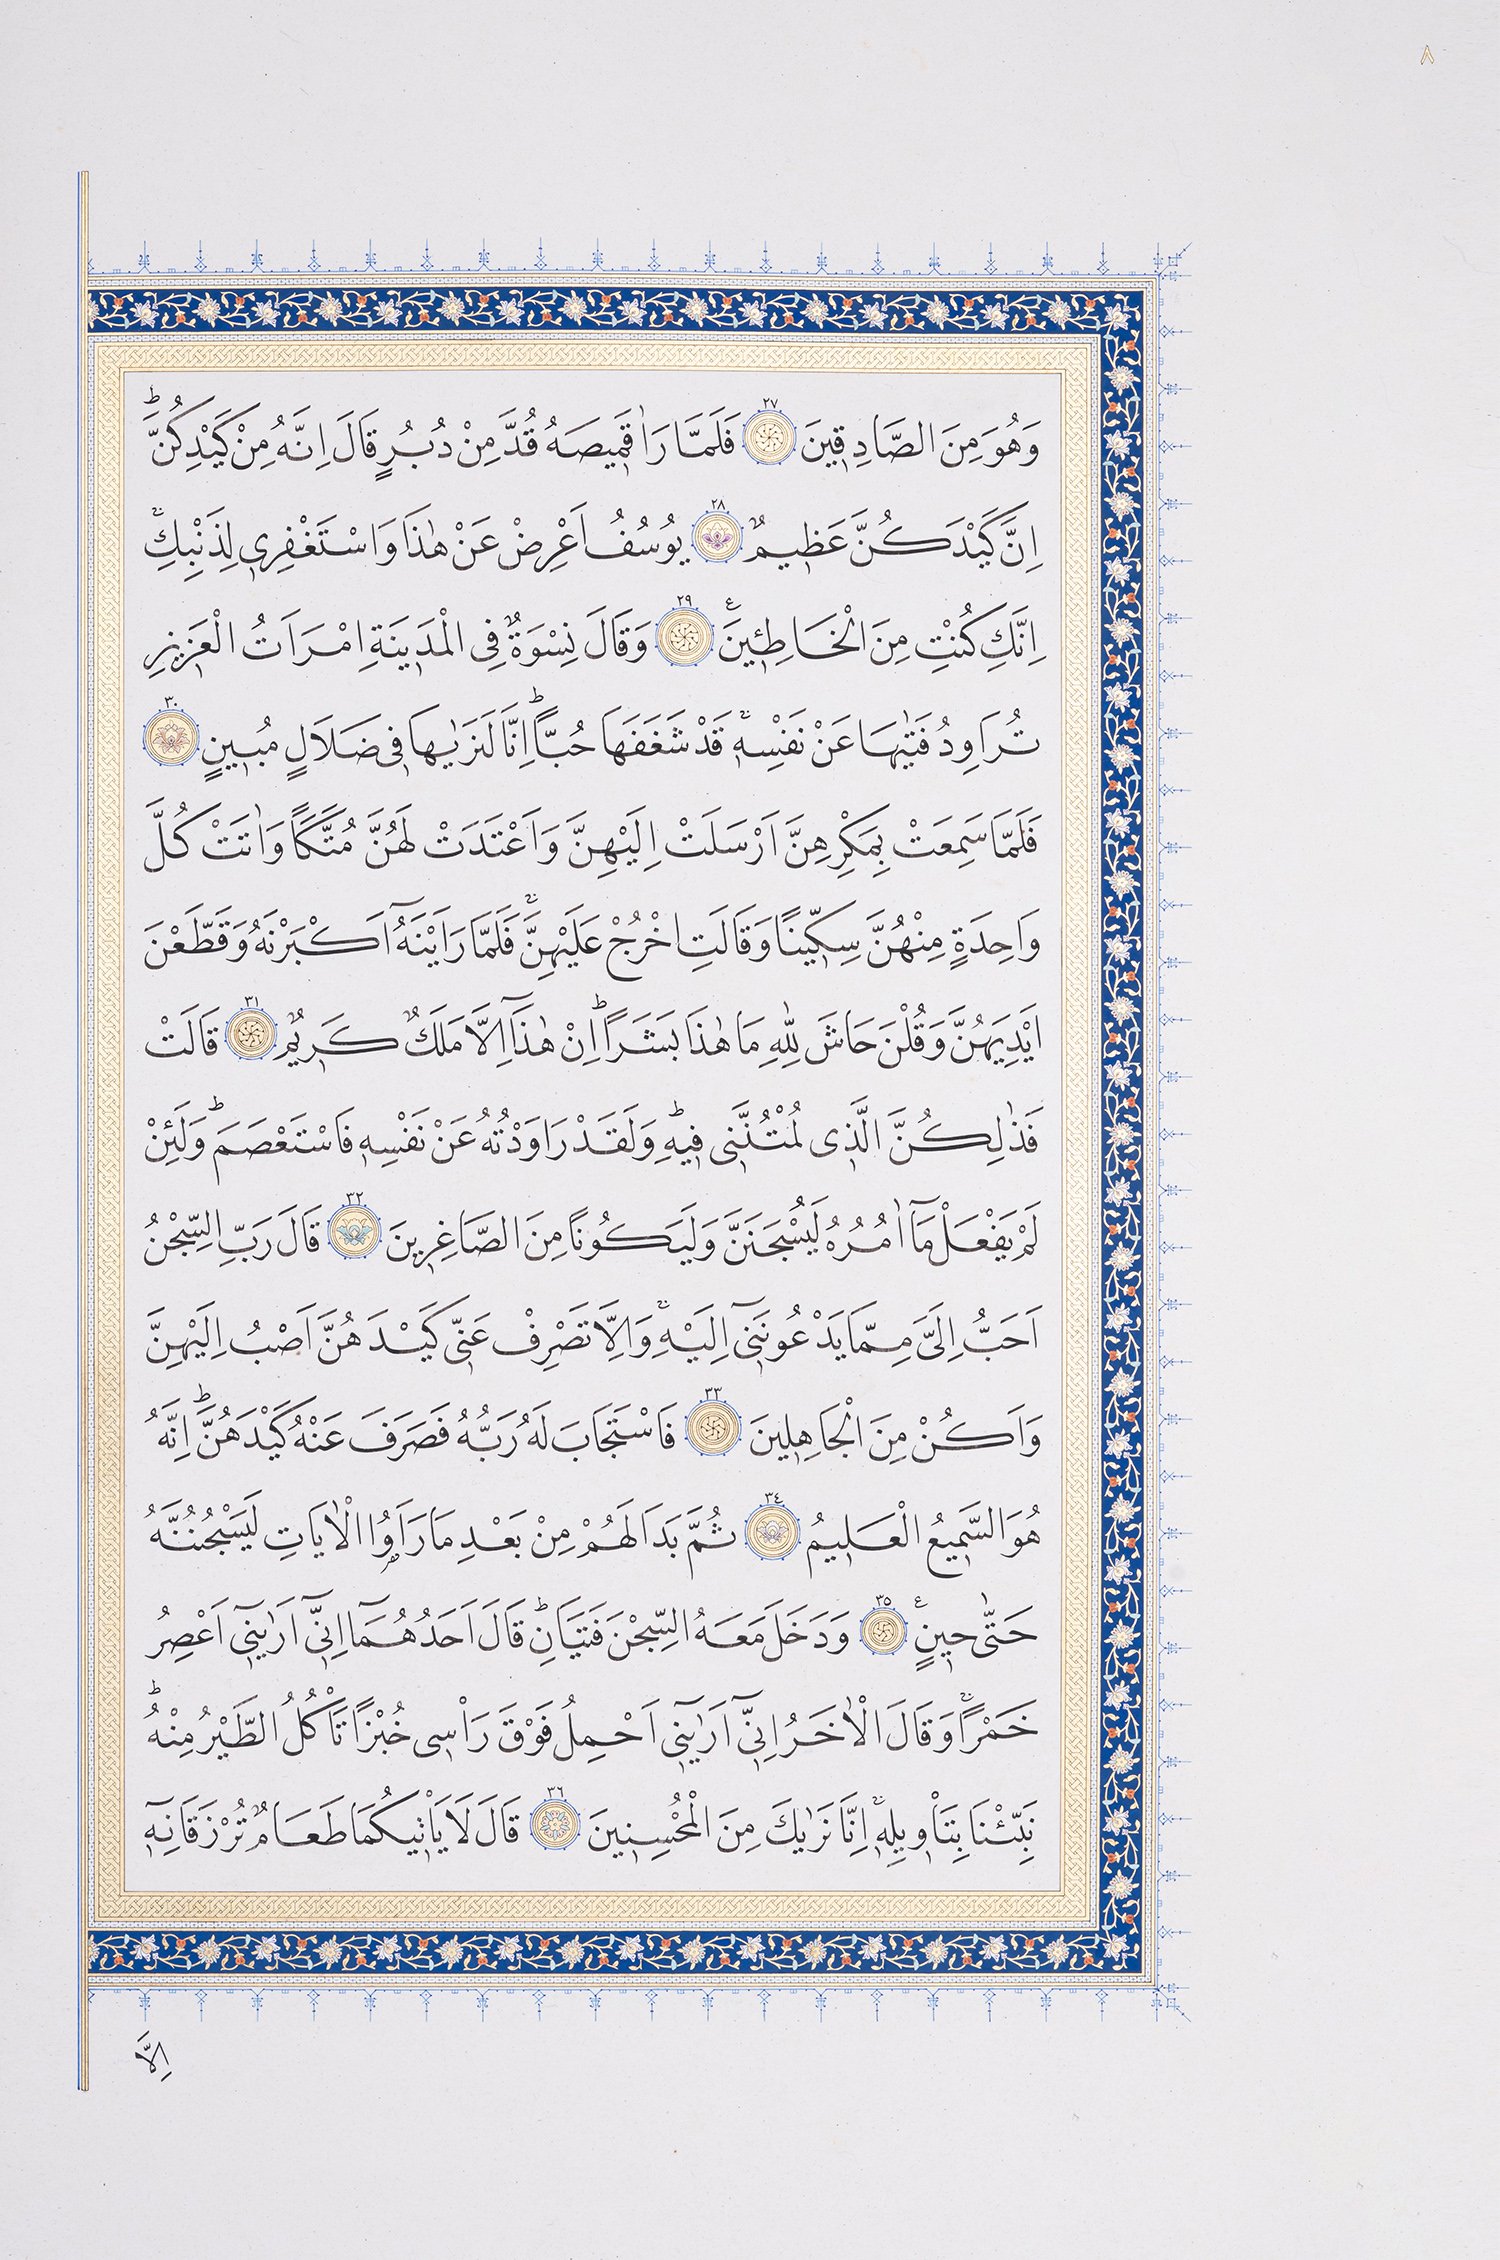 ٨
وَهُوَ مِنَ الصَّادِقِينَ ٢٧ فَلَمَّا رَاٰ قَمِيصَهُ قُدَّ مِنْ دُبُرٍ قَالَ اِنَّهُ مِنْ كَيْدِكُنَّۜ
اِنَّ كَيْدَكُنَّ عَظِيمٌ ٢٨ يُوسُفُ اَعْرِضْ عَنْ هٰذَا وَاسْتَغْفِرِي لِذَنْبِكِۚ
اِنَّكِ كُنْتِ مِنَ الْخَاطِـِٔينَ ٢٩ وَقَالَ نِسْوَةٌ فِي الْمَدِينَةِ امْرَاَتُ الْعَزِيزِ
تُرَاوِدُ فَتٰيهَا عَنْ نَفْسِهِۚ قَدْ شَغَفَهَا حُبًّاۜ اِنَّا لَنَرٰيهَا فِي ضَلَالٍ مُبِينٍ ٣٠
فَلَمَّا سَمِعَتْ بِمَكْرِهِنَّ اَرْسَلَتْ اِلَيْهِنَّ وَاَعْتَدَتْ لَهُنَّ مُتَّكَـًٔا وَاٰتَتْ كُلَّ
وَاحِدَةٍ مِنْهُنَّ سِكِّينًا وَقَالَتِ اخْرُجْ عَلَيْهِنَّۚ فَلَمَّا رَاَيْنَهُٓ اَكْبَرْنَهُ وَقَطَّعْنَ
اَيْدِيَهُنَّ وَقُلْنَ حَاشَ لِلّٰهِ مَا هٰذَا بَشَرًاۜ اِنْ هٰذَٓا اِلَّا مَلَكٌ كَرِيمٌ ٣١ قَالَتْ
فَذٰلِكُنَّ الَّذِي لُمْتُنَّنِي فِيهِۜ وَلَقَدْ رَاوَدْتُهُ عَنْ نَفْسِهِ فَاسْتَعْصَمَۜ وَلَئِنْ
لَمْ يَفْعَلْ مَٓا اٰمُرُهُ لَيُسْجَنَنَّ وَلَيَكُونًا مِنَ الصَّاغِرِينَ ٣٢ قَالَ رَبِّ السِّجْنُ
اَحَبُّ اِلَيَّ مِمَّا يَدْعُونَنِٓي اِلَيْهِۚ وَاِلَّا تَصْرِفْ عَنِّي كَيْدَهُنَّ اَصْبُ اِلَيْهِنَّ
وَاَكُنْ مِنَ الْجَاهِلِينَ ٣٣ فَاسْتَجَابَ لَهُ رَبُّهُ فَصَرَفَ عَنْهُ كَيْدَهُنَّۜ اِنَّهُ
هُوَ السَّمِيعُ الْعَلِيمُ ٣٤ ثُمَّ بَدَا لَهُمْ مِنْ بَعْدِ مَا رَاَوُا الْاٰيَاتِ لَيَسْجُنُنَّهُ
حَتّٰى حِينٍ ٣٥ وَدَخَلَ مَعَهُ السِّجْنَ فَتَيَانِۜ قَالَ اَحَدُهُمَٓا اِنِّٓي اَرٰينِٓي اَعْصِرُ
خَمْرًاۚ وَقَالَ الْاٰخَرُ اِنِّٓي اَرٰينِٓي اَحْمِلُ فَوْقَ رَاْسِي خُبْزًا تَاْكُلُ الطَّيْرُ مِنْهُۜ
نَبِّئْنَا بِتَاْوِيلِهِۚ اِنَّا نَرٰيكَ مِنَ الْمُحْسِنِينَ ٣٦ قَالَ لَا يَاْتِيكُمَا طَعَامٌ تُرْزَقَانِهِٓ
اِلَّا